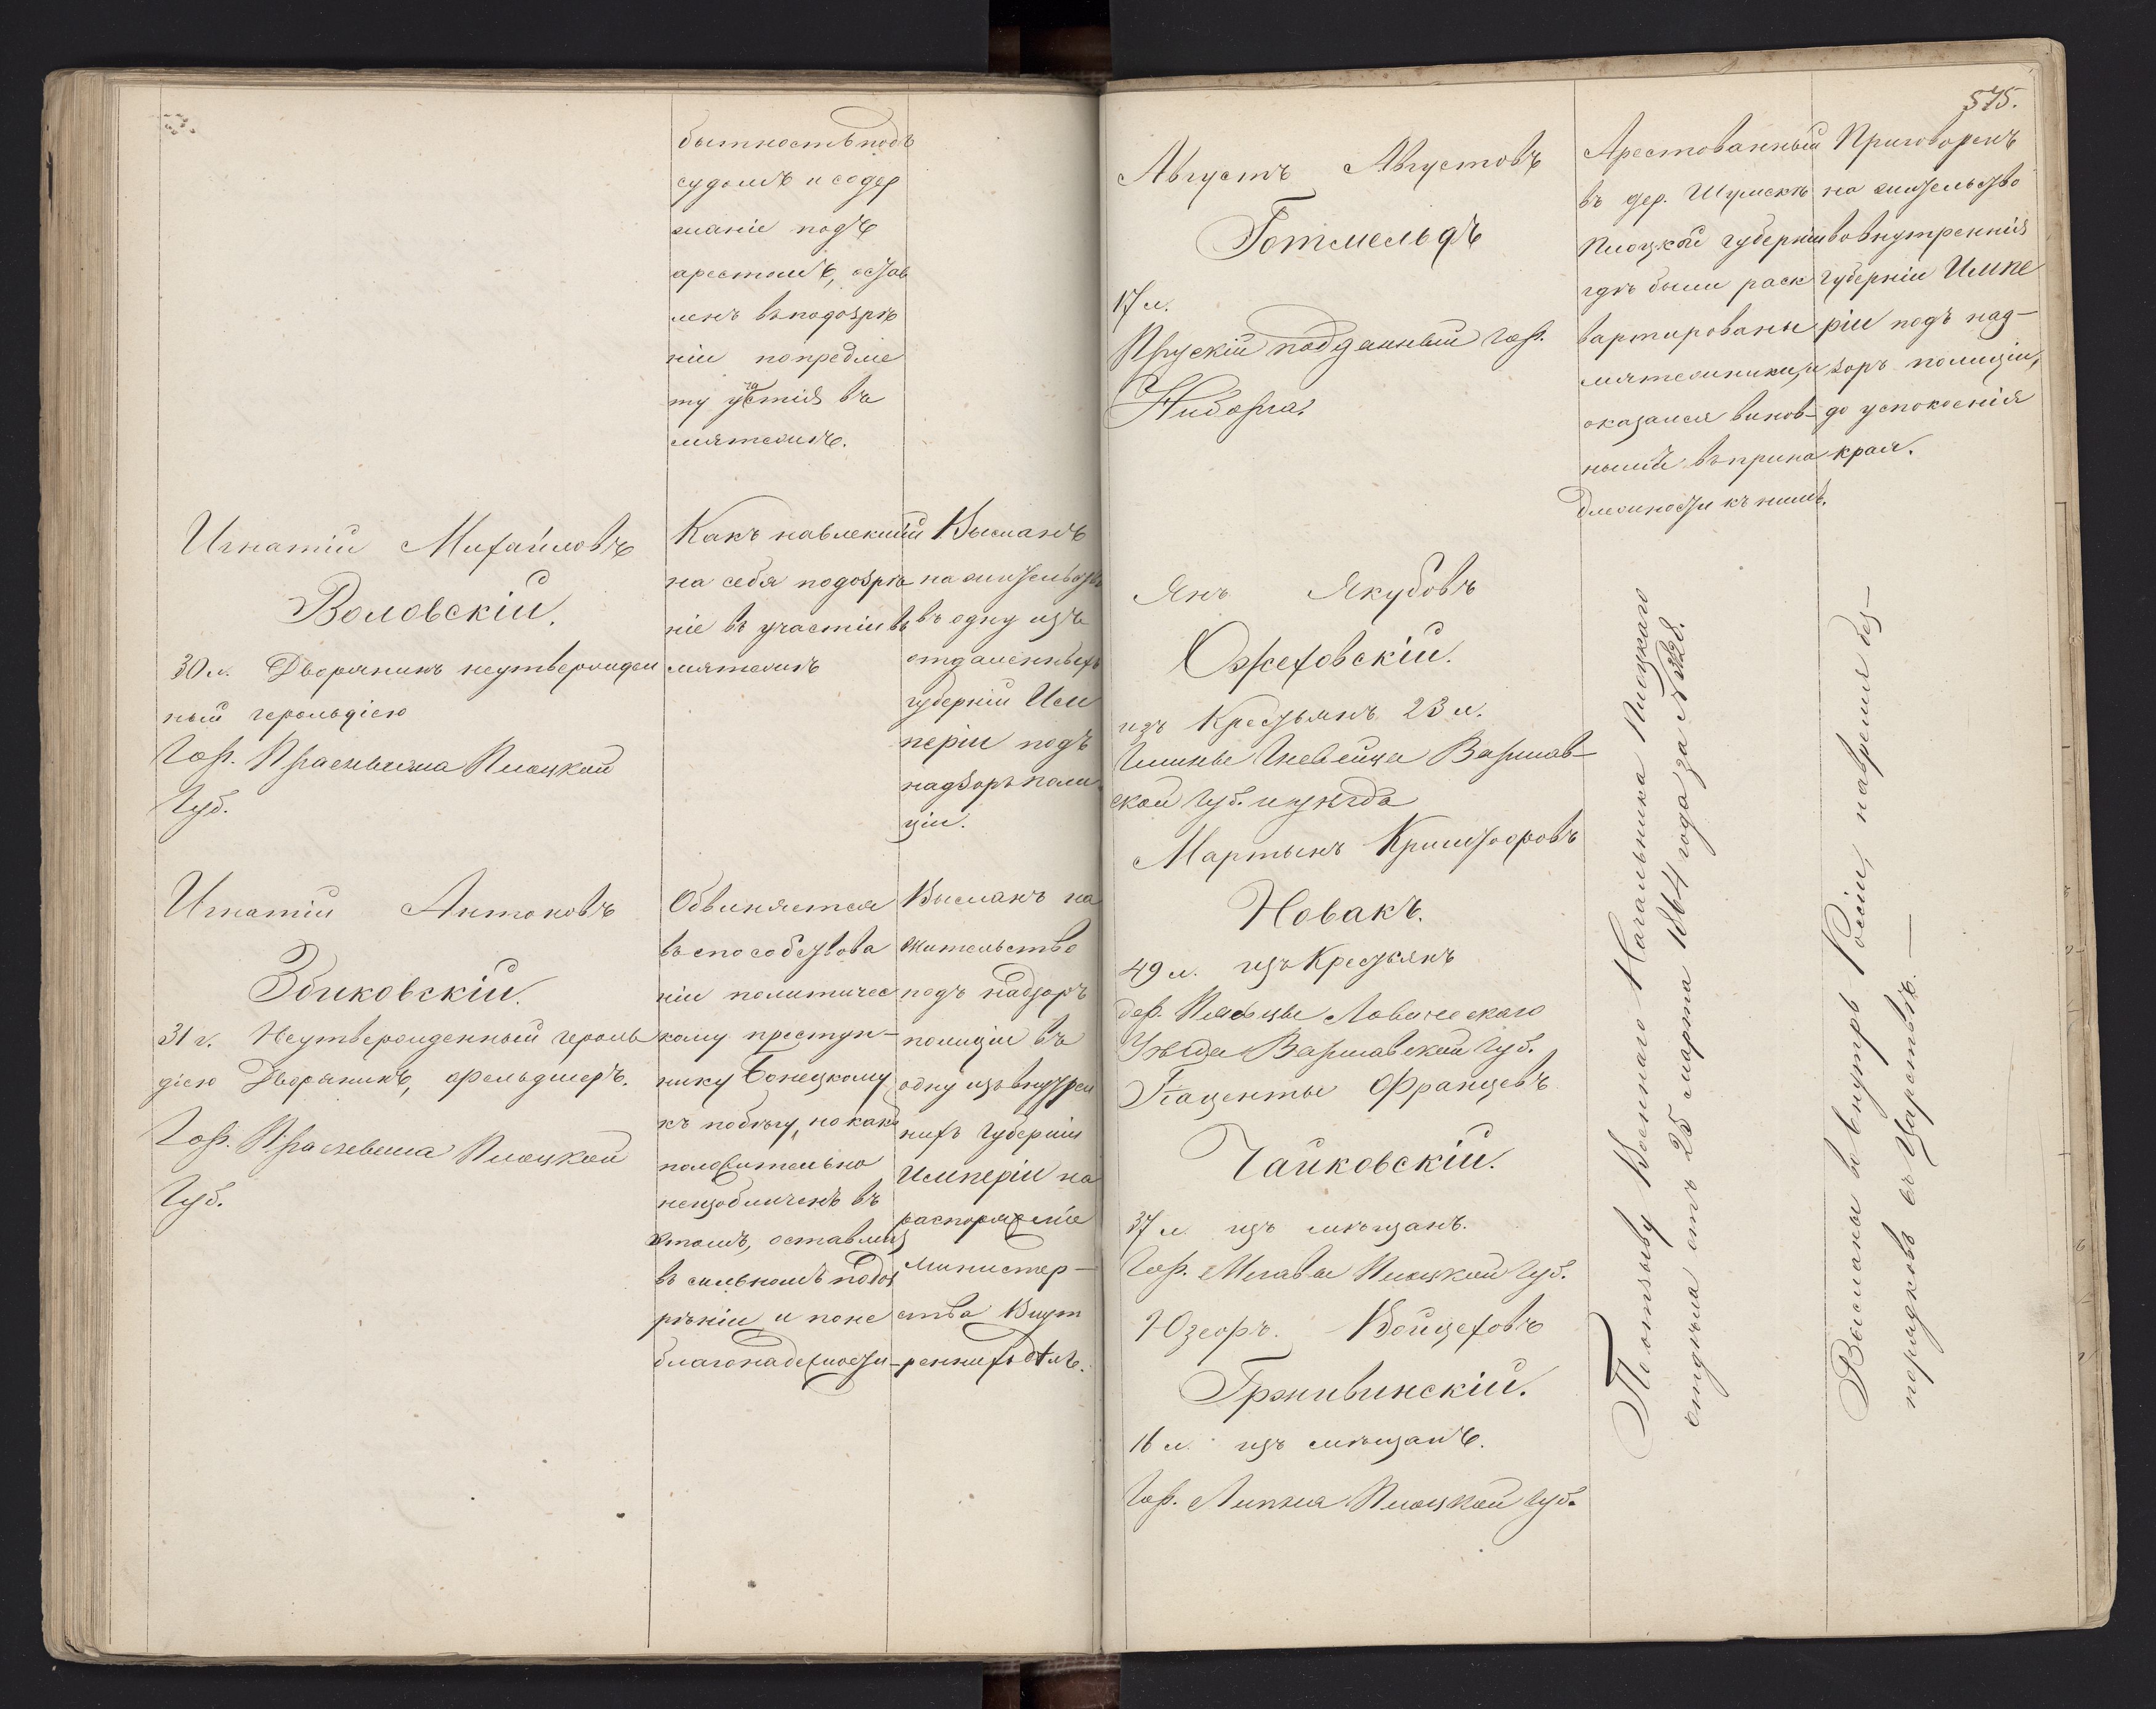 бытность подъ
судомъ и содер
жаніи подъ
арестомъ, остав
ленъ въ подозрѣ
ніи по предме
ту участія въ
мятежѣ.
Игнатій Михайловъ
Воловскій.
30 л. Дворянинъ неутвержден
ный герольдіею
Гор. Прасныша Плоцкой
Губ.
Какъ навлекшій
на себя подозрѣ
ніе въ участіи въ
мятежѣ
Высланъ
на жительство
въ одну изъ
отдаленныхъ
губерній Им
періи подъ
надзоръ поли
ціи.
Игнатій Антоновъ
Збиковскій.
31 г. Неутвержденный героль
діею Дворянинъ, фельдшеръ.
Гор. Прасныша Плоцкой
Губ.
Обвиняется
въ способствова
ніи политичес
кому преступ-
нику Бонецкому
къ побѣгу, но какъ
положительно
неизобличенъ въ
этомъ, оставленъ
въ сильномъ подоз
рѣніи и по не
благонадежности-
Высланъ на
жительство
подъ надзоръ
полиціи въ
одну изъ внутрен
нихъ Губерній
Имперіи на
распоряженіе
Министер-
ства Внут
реннихъ дѣлъ.
575.
Августъ Августовъ
Готмельдъ
17 л.
Прускій подданный гор.
Ниборга.
Арестованный
въ дер. Шумскѣ
Плоцкой губерніи
гдѣ были раск
вартированы
мятежники, и
оказался винов-
нымъ въ прина
длежности къ нимъ.
Приговоренъ
на жительство
во внутреннія
губерніи Импе
ріи подъ над-
зоръ полиціи,
до успокоенія
края.
Янъ Якубовъ
Ожеховскій.
изъ Крестьянъ 23 л.
Гмины Гневица Варшав-
ской Губ. и уѣзда
Мартынъ Криштофовъ
Новакъ.
49 л. изъ Крестьянъ
дер. Ловичскаго
Уѣзда Варшавской Губ.
Гіаценты Францевъ
Чайковскій.
37 л. изъ мѣщанъ.
Гор. Млавы Плоцкой Губ.
Юзефъ Войцеховъ
Грживинскій.
16 л. изъ мѣщанъ.
Гор. Липна Плоцкой Губ.
По отзыву Военнаго Начальника Плоцкаго
отдѣла отъ 25 марта 1864 года за № 328.
Высланы во внутрь Россіи, на время без-
порядковъ въ Царствѣ. —